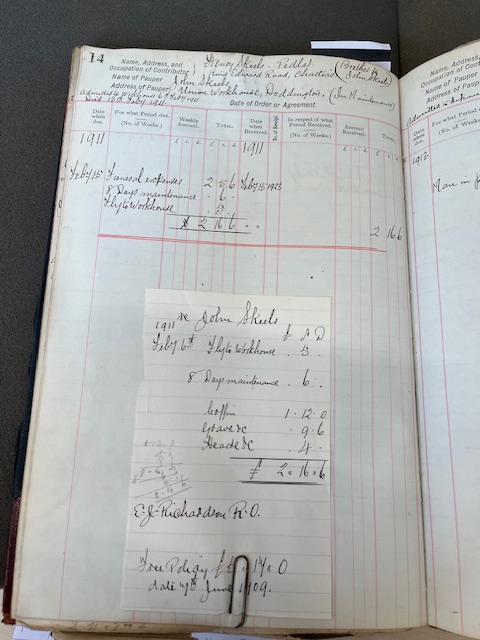 14
Name, Address, and Occupation of Contributor } Henry Skeels. Pedlar. (Brother of
King Edward Road, Chatteris John Skeels)
Name of Pauper John Skeels
Address of Pauper Union Workhouse, Doddington, (In Maintenance)
admitted to Workhouse 6th Feby 1911
Died 13th Feby 1911.
Date of Order or Agreement
Date when due. For what Period due. (No. of Weeks.) Weekly Amount. Total. Date when Received. No. of Receipt. In respect of what Period Received. (No. of Weeks.) Amount Received. Total.
£ s. d. £ s. d. £ s. d. £
1911 1911
Feby 15 Funeral expenses 2 5 6 Feby 15 1923
8 Days maintenance . 6 .
Fly to Workhouse . 5 .
£ 2 16 6 . . 2 16 6
re John Skeels
1911 £ s D
Feby 6th Fly to Workhouse . 5 .
8 Days maintenance . 6 .
Coffin 1 . 12 . 0
Grave &c . 9 . 6
Hearse &c . 4 .
£ 2 . 16 . 6
E. J. Richardson R.O.
Free Policy £ 14 . 0
date 7th June 1909.
Name, Address,
Occupation of
Name of Pauper
Address of Pauper
Date when due.
For what Period
1912
Man in